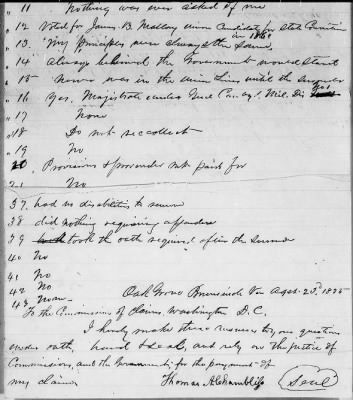 " 11 Nothing was ever asked of me
" 12 Voted for James B. Mallory union Candidate for State Convention
in 1861
" 13 My principles were always the same.
" 14 always believed the Government would stand
" 15 never was in the union lines until the surrender
" 16 Yes. Magistrate under Genl Mil. Dis No 1
" 17 None
" 18 Do not reccollect
" 19 No
20. Provisions & provender not paid for
" 21 No
37. had no disabilities to remove
38 did nothing requiring
39 took the oath required after the surrender
40 No
41 No
42 No
43 None
Oak Grove Brunswick Va
To the Commissioners of Claims, Washington D.C.
I hereby make these answers to your questions
under oath, hand & seal, and rely on the justice of
Commissioners, and the Government, for the payment of
my claims
Thomas A Chambliss (Seal)